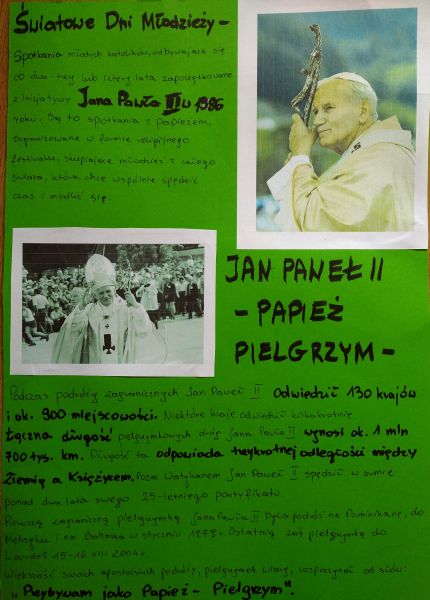 Światowe Dni Młodzieży -
Spotkania młodych katolików, odbywające się
co dwa-trzy lub cztery lata zapoczątkowane
z inicjatywy Jana Pawła II w 1986
roku. Są to spotkania z papieżem,
organizowane w formie religijnego
festiwalu, skupiające młodzież z całego
świata, która chce wspólnie spędzić
czas i modlić się.
JAN PAWEŁ II
- PAPIEŻ
PIELGRZYM -
Podczas podróży zagranicznych Jan Paweł II Odwiedził 130 krajów
i ok. 900 miejscowości. Niektóre kraje odwiedził kilkakrotnie
Łączna długość pielgrzymkowych dróg Jana Pawła II wynosi ok. 1 mln
700 tys. km. Długość ta odpowiada trzykrotnej odległości między
Ziemią a Księżycem. Poza Watykanem Jan Paweł II spędził w sumie
ponad dwa lata swego 25-letniego pontyfikatu.
Pierwszą zagraniczną pielgrzymką Jana Pawła II była podróż na Dominikanę, do
Meksyku i na Bahama w styczniu 1979r. Ostatnią zaś pielgrzymką do
Lourdes 15-16 VIII 2004r.
Większość swoich apostolskich podróży, pielgrzymek wiary, rozpoczynał od słów:
"Przybywam jako Papież - Pielgrzym".